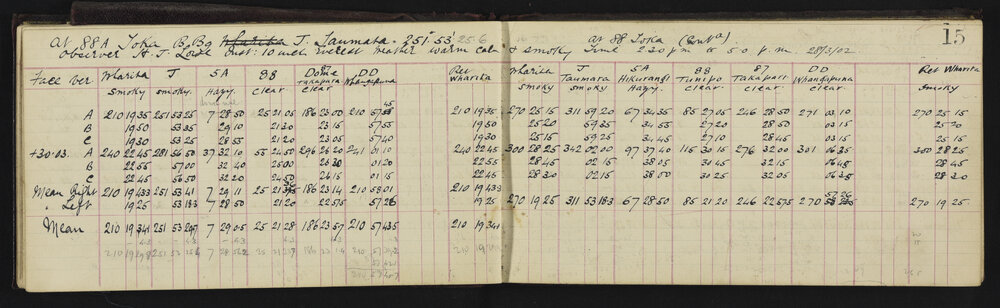 At 88A Toka B. Bg Wharita J. Taumata. 251° 53' 25.6
At 88 Toka (Contd)
15
Observer H. J. Lowe Inst: 10 inch Everest Weather warm calm & smoky Time 2.30 p.m to 5.0 p.m. 28/3/02.
Face Ver Wharita J 5A 88 Dome 87 DD Ret Wharita J 5A 88 87 DD Ret Wharita
Takapari Whangapuna Wharita Taumata Hikurangi Tunipo Takapari Whangapuna
Smoky smoky. Hazy. Clear Clear Smoky smoky Hazy. Clear. Clear. Clear Smoky
A 210 19 35 251 53 25 7 28 50 25 21 05 186 23 00 210 57 45 210 19 35 270 25 15 311 59 20 67 34 35 85 27 05 246 28 50 271 03 10 270 25 15
B 19 50 53 35 29 10 21 30 23 15 57 55 19 50 25 20 59 25 34 55 27 20 28 50 03 15 25 20
C 19 30 53 25 28 55 21 20 23 00 57 40 19 30 25 15 59 25 34 45 27 10 28 45 03 15 25 15
+30.03. A 240 22 45 281 56 50 37 32 10 55 24 50 296 26 20 241 01 10 240 22 45 300 28 25 342 02 00 97 37 40 115 30 15 276 32 00 301 06 35 300 28 25
B 22 55 57 00 32 40 25 00 26 30 01 20 22 55 28 45 02 15 38 05 30 45 32 15 06 45 28 45
C 22 45 56 50 32 20 24 50 26 15 01 15 22 45 28 30 02 15 38 00 30 25 32 05 06 35 28 30
Mean Right 210 19 433 251 53 41 7 29 11 25 21 35 186 23 14 210 58 01 210 19 433
" Left 19 25 53 183 7 28 50 21 20 22 575 57 26 19 25 270 19 25 311 53 183 67 28 50 85 21 20 246 22 575 270 57 26 270 19 25
Mean 210 19 341 251 53 297 7 29 05 25 21 28 186 23 57 210 57 435 210 19 341